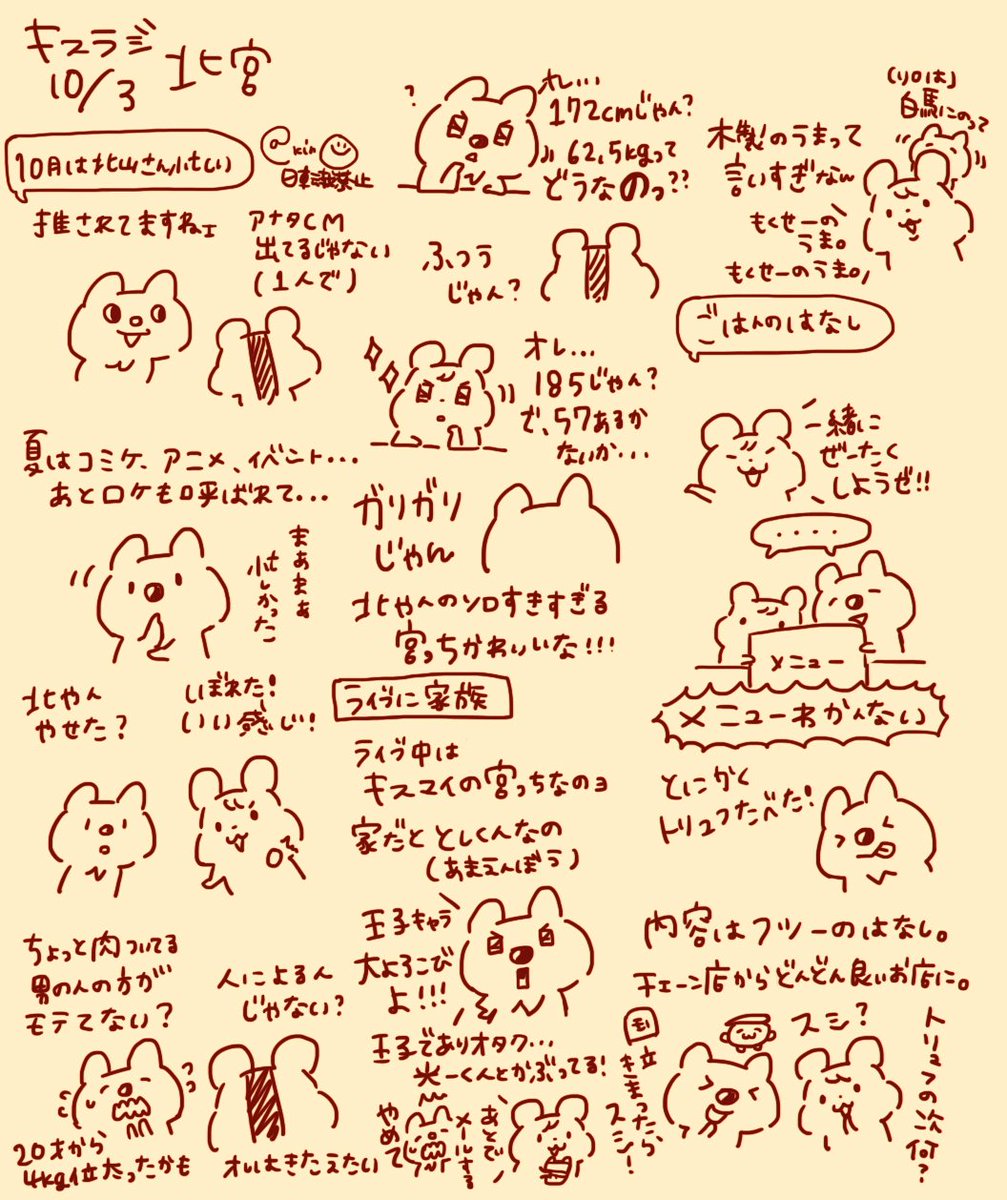 キスラジ
10/3
北宮
10月は北山さん忙しい
@kin
日車云載禁止
推されてますねェ
アナタCM
出てるじゃない
(1人で)
夏はコミケ、アニメ、イベント...
あとロケも呼ばれて...
まあまあ
忙しかった
北やん
やせた?
しぼれた!
いい感じ!
ちょっと肉ついてる
男の人の方が
モテてない?
人によるん
じゃない?
20才から
4kg位太ったかも
オレはきたえたい
?
オレ...
172cmじゃん?
62.5kgって
どうなのっ??
ふつう
じゃん?
オレ...
185じゃん?
で、57あるか
ないか...
ガリガリ
じゃん
北やんのソロすきすぎる
宮っちかわいいな!!!
ライブに家族
ライブ中は
キスマイの宮っちなのョ
家だと としくんなの
(あまえんぼう)
王子キャラ
大よろこび
よ!!!
王子でありオタク...
光一くんとかぶってる!
やめて
あとで
メールする
(ソロは)
白馬にのって
木製のうまって
言いすぎなん
もくせーの
うま。
もくせーのうま。
ごはんのはなし
一緒に
ぜーたく
しようぜ!!
....
メニュー
メニューわかんない
とにかく
トリュフたべた!
内容はフツーのはなし。
チェーン店からどんどん良いお店に。
トリュフの次何?
スシ?
きまったら
スシ!